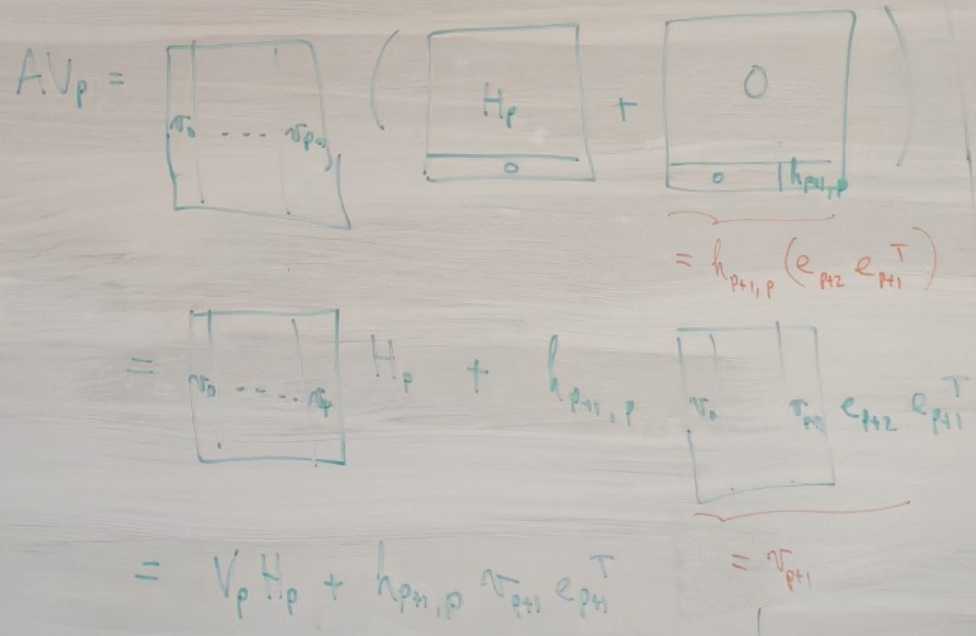 AV_p = [ v_0 .... v_{p+1} ] ( [ H_p / 0 ] + [ 0 / 0 | h_{p+1,p} ] )
= h_{p+1,p} (e_{p+2} e_{p+1}^T)
= [ v_0 .... v_p ] H_p + h_{p+1,p} [ v_0 v_{p+1} ] e_{p+2} e_{p+1}^T
= v_{p+1}
= V_p H_p + h_{p+1,p} v_{p+1} e_{p+1}^T